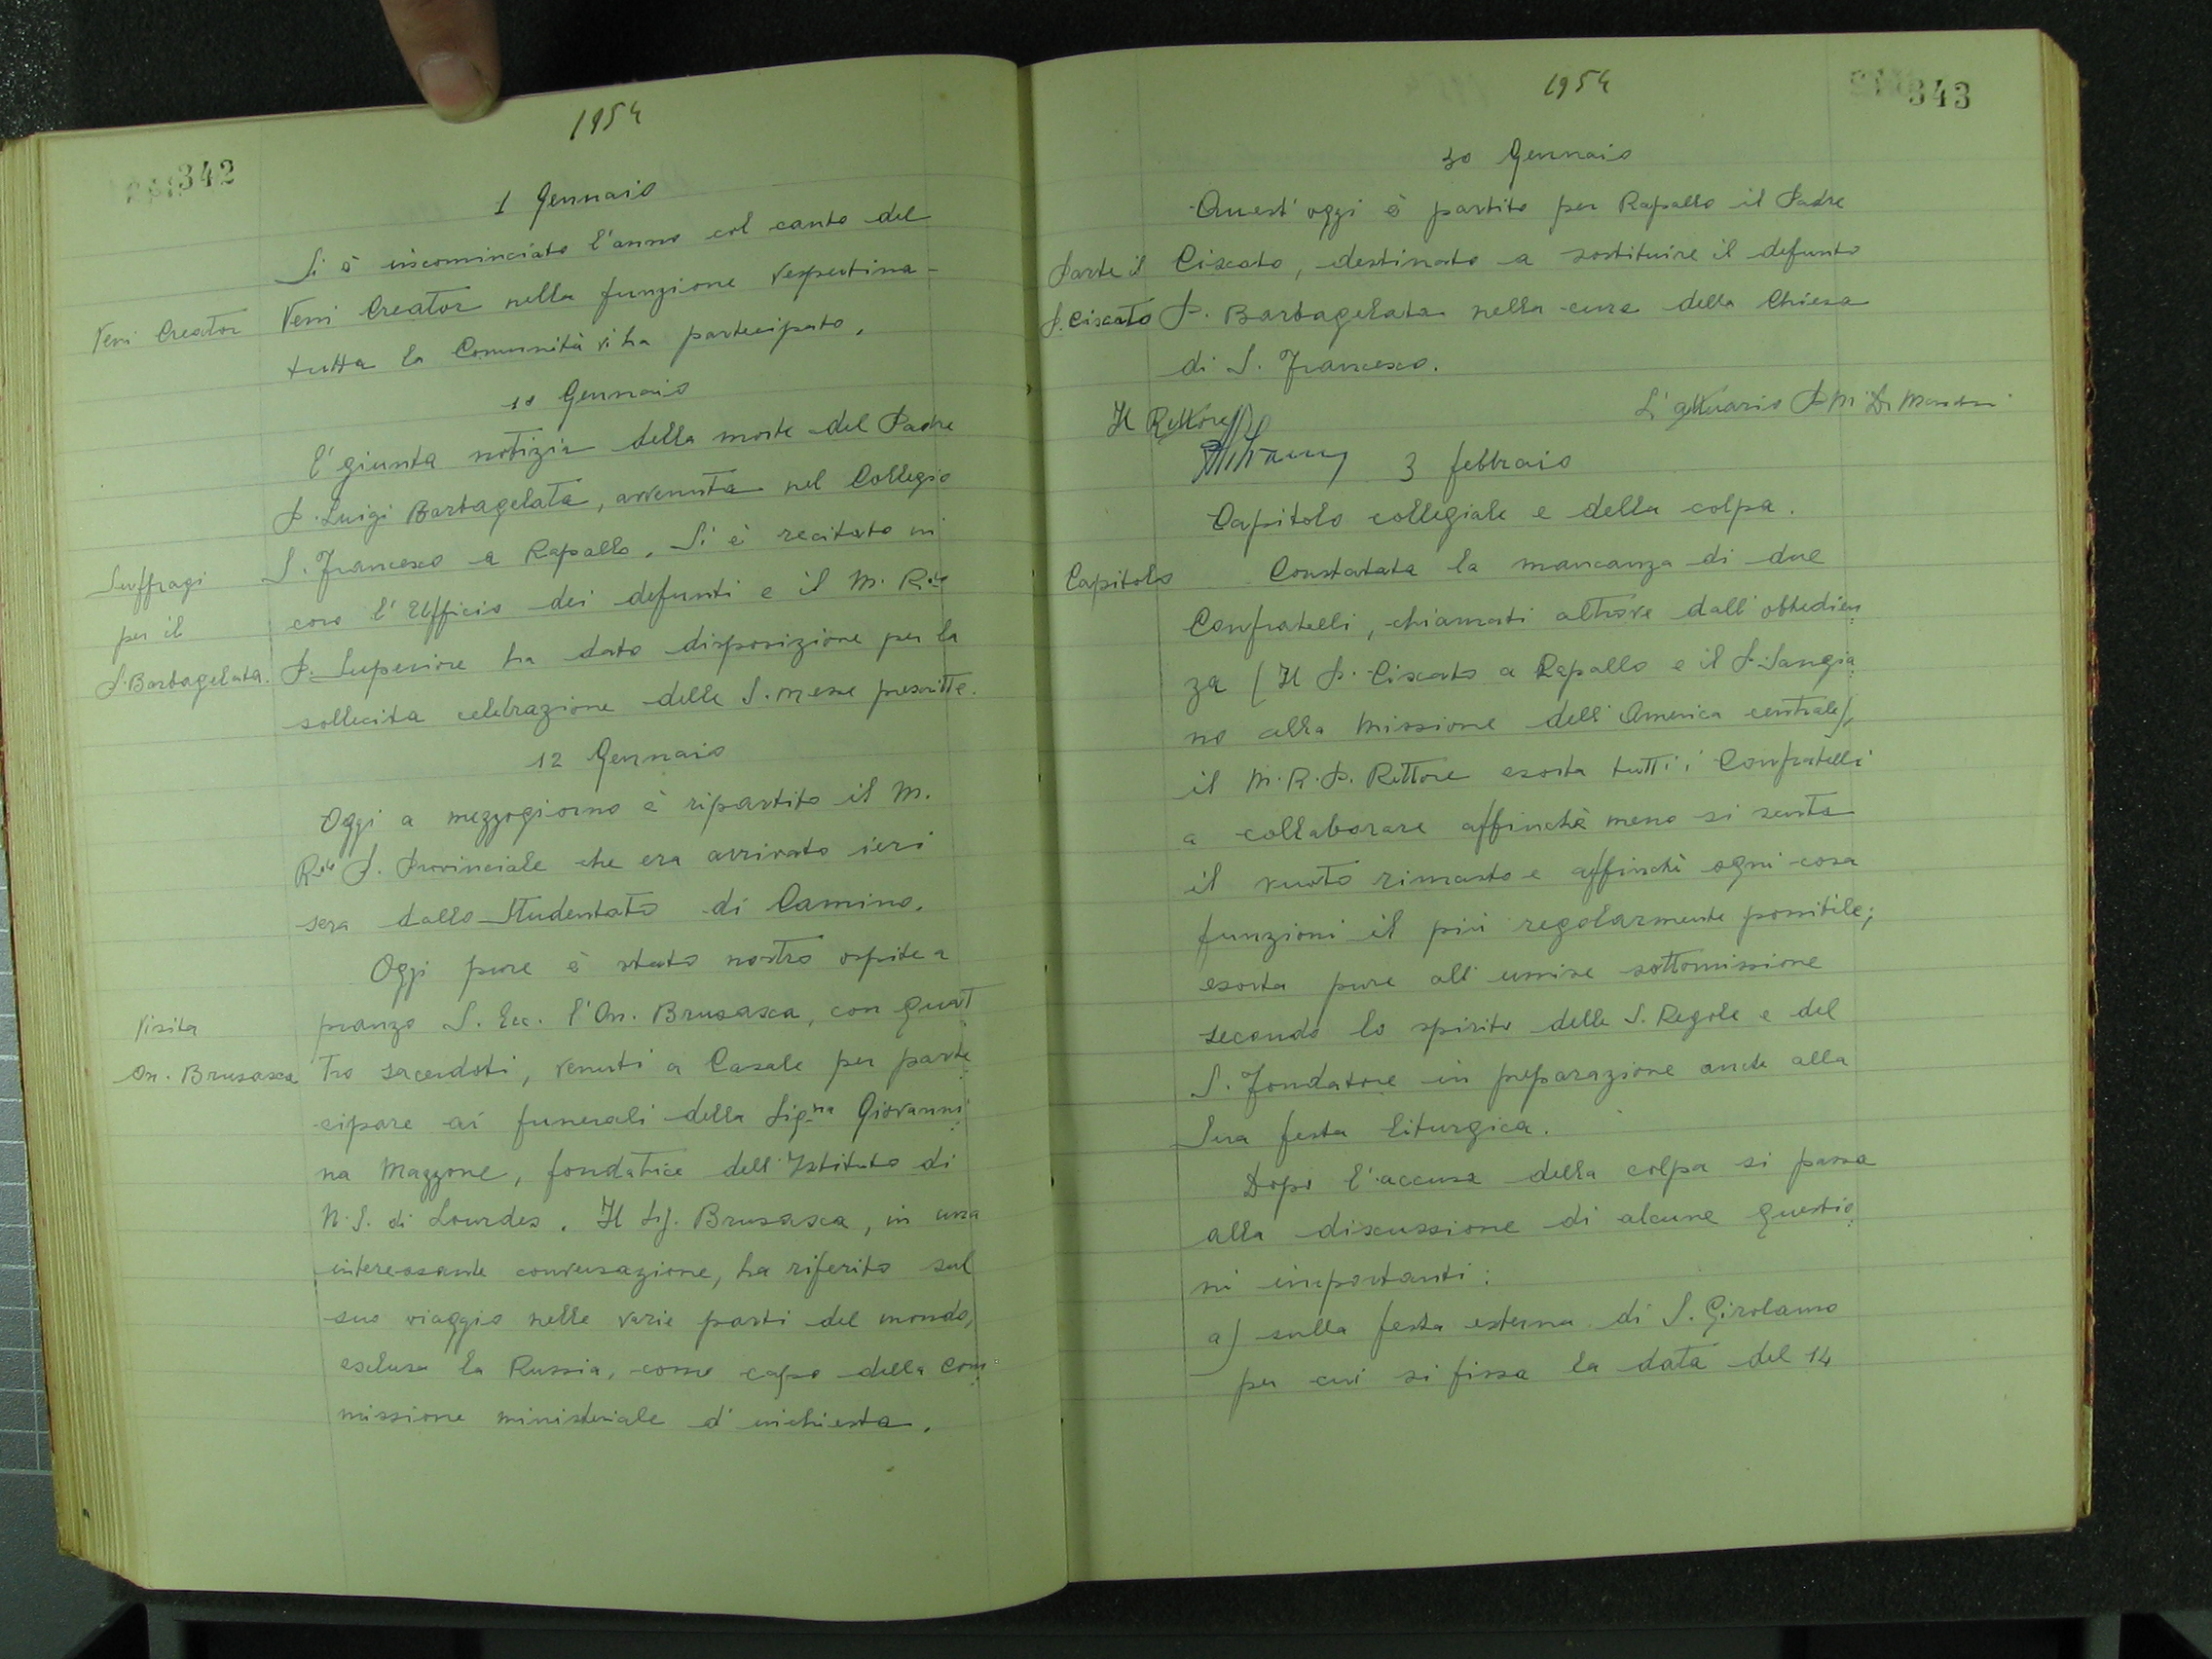 342
1954
1 Gennaio
Si è incominciato l'anno col canto del
Veni Creator
Veni Creator nella funzione vespertina -
tutta la Comunità vi ha partecipato.
10 Gennaio
E' giunta notizia della morte del Padre
P. Luigi Barbagelata, avvenuta nel Collegio
S. Francesco a Rapallo. Si è recitato in
Suffragi
per il
P. Barbagelata.
coro l'Ufficio dei defunti e il M. R.do
P. Superiore ha dato disposizione per la
sollecita celebrazione delle S. Messe prescritte.
12 Gennaio
Oggi a mezzogiorno è ripartito il M.
R.do P. Provinciale che era arrivato ieri
sera dallo Studentato di Camino.
Oggi pure è stato nostro ospite a
Visita
On. Brusasca
pranzo S. Ecc. l'On. Brusasca, con quat
tro sacerdoti, venuti a Casale per parte
cipare ai funerali della Sig.na Giovanni
na Mazzone, fondatrice dell'Istituto di
N. S. di Lourdes. Il Sig. Brusasca, in una
interessante conversazione, ha riferito sul
suo viaggio nelle varie parti del mondo,
esclusa la Russia, come capo della com
missione ministeriale d'inchiesta.
343
1954
30 Gennaio
Quest'oggi è partito per Rapallo il Padre
Parte il
P. Ciscato
Ciscato, destinato a sostituire il defunto
P. Barbagelata nella cura della Chiesa
di S. Francesco.
L'attuario P. M.
Il Rettore
3 febbraio
Capitolo collegiale e della colpa.
Capitolo
Constatata la mancanza di due
Confratelli, chiamati altrove dall'obbedien
za (Il P. Ciscato a Rapallo e il P. Sangia
no alla Missione dell'America centrale),
il M. R. P. Rettore esorta tutti i Confratelli
a collaborare affinchè meno si senta
il vuoto rimasto e affinchè ogni cosa
funzioni il più regolarmente possibile;
esorta pure all'umire sottomissione
secondo lo spirito delle S. Regole e del
S. Fondatore in preparazione anche alla
Sua festa liturgica.
Dopo l'accusa della colpa si passa
alla discussione di alcune questio
ni importanti:
a) sulla festa esterna di S. Girolamo
per cui si fissa la data del 14